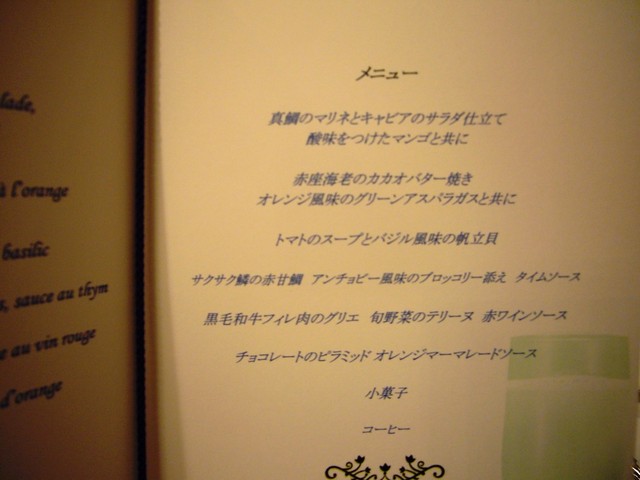 lade,
à l'orange
basilic
s, sauce au thym
e au vin rouge
d'orange
メニュー
真鯛のマリネとキャビアのサラダ仕立て
酸味をつけたマンゴと共に
赤座海老のカカオバター焼き
オレンジ風味のグリーンアスパラガスと共に
トマトのスープとバジル風味の帆立貝
サクサク鱗の赤甘鯛 アンチョビー風味のブロッコリー添え タイムソース
黒毛和牛フィレ肉のグリエ 旬野菜のテリーヌ 赤ワインソース
チョコレートのピラミッド オレンジマーマレードソース
小菓子
コーヒー